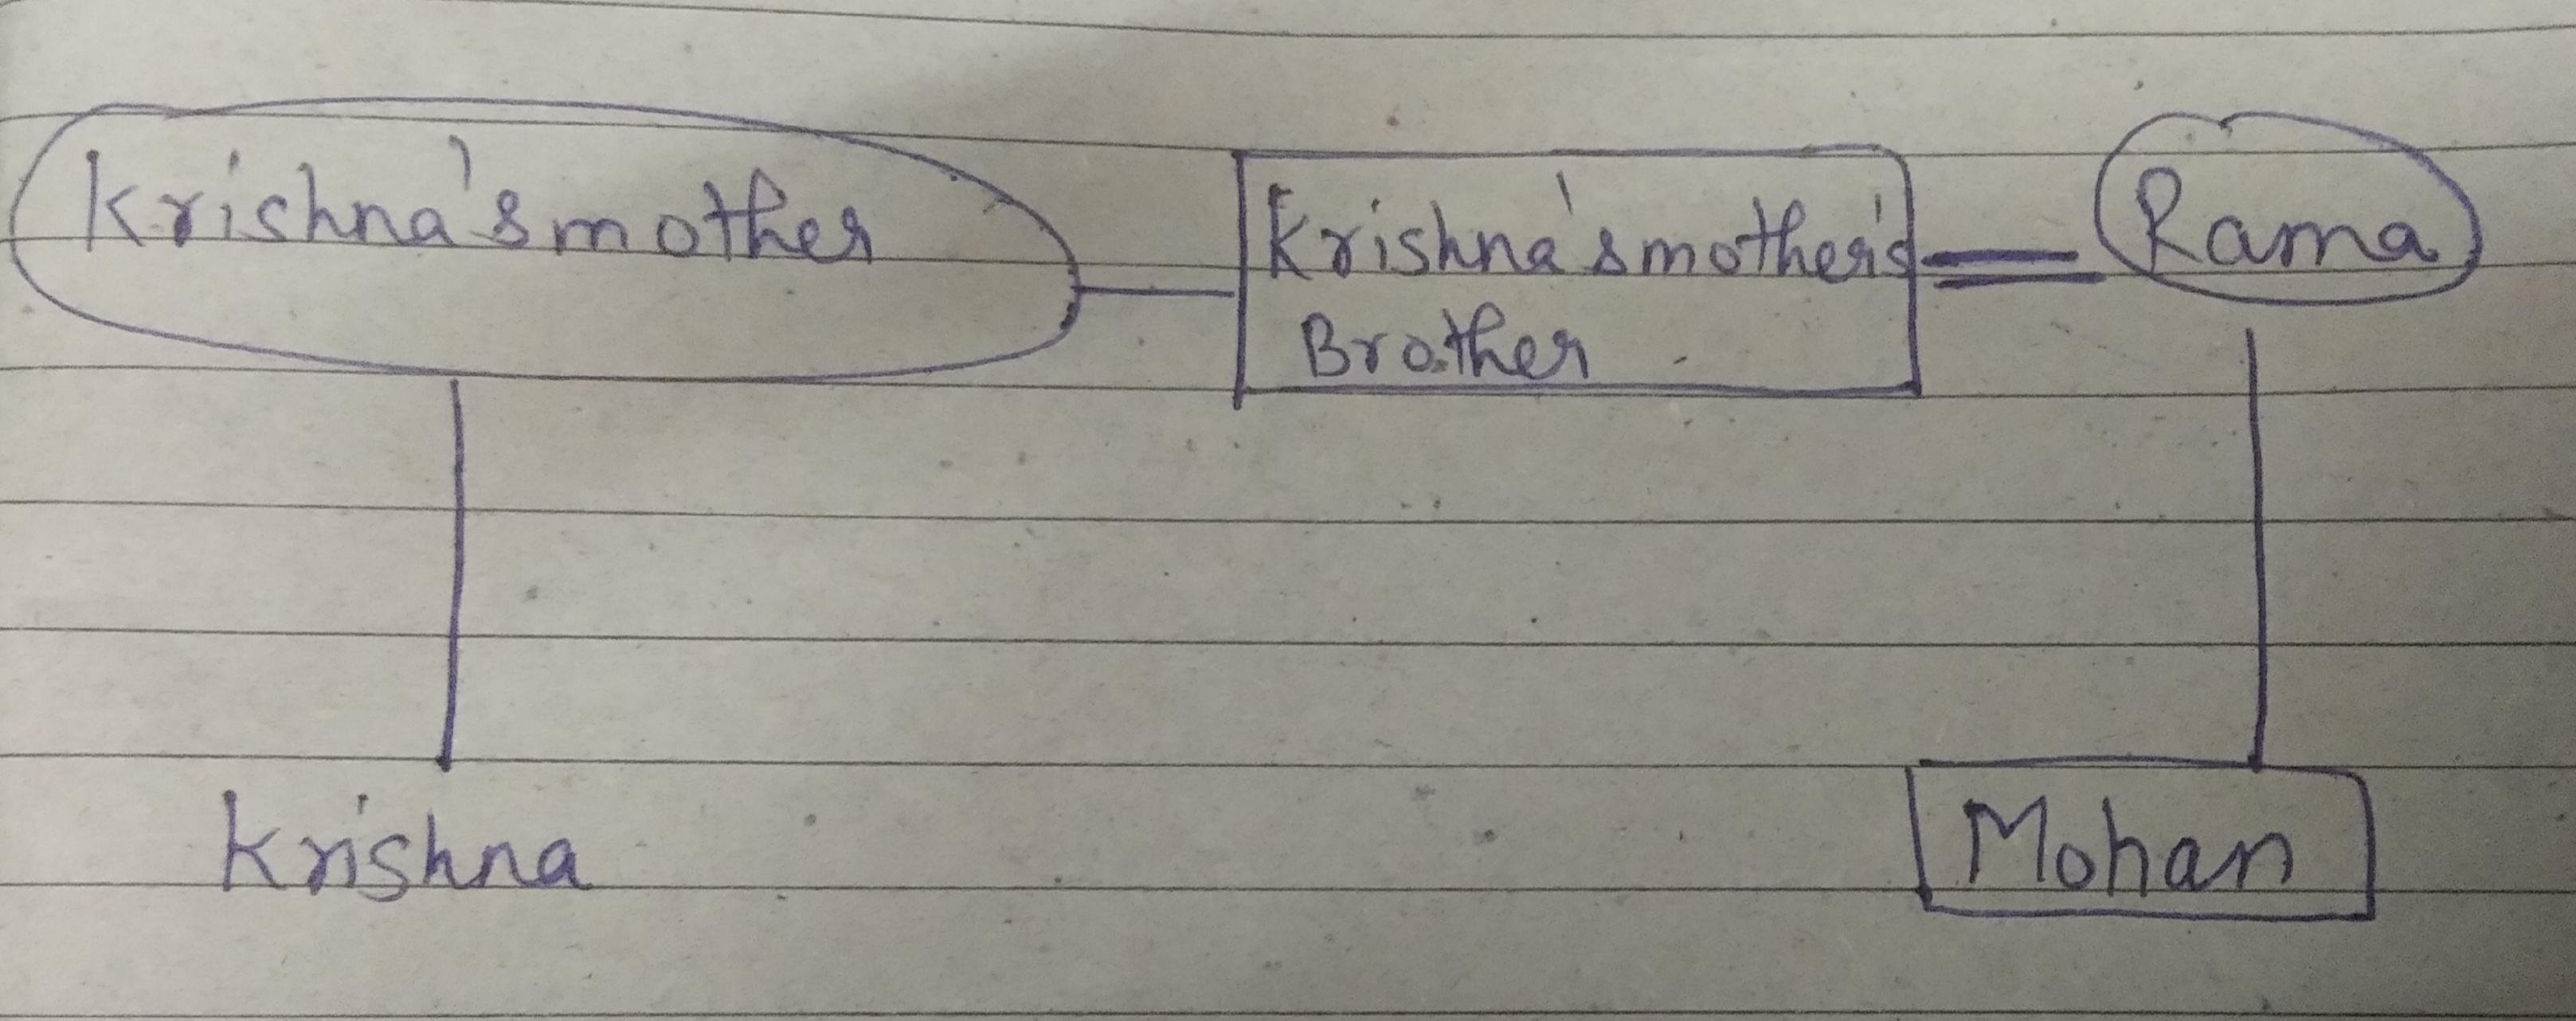 Krishna's mother
Krishna's mother's
Brother
Rama
Krishna
Mohan